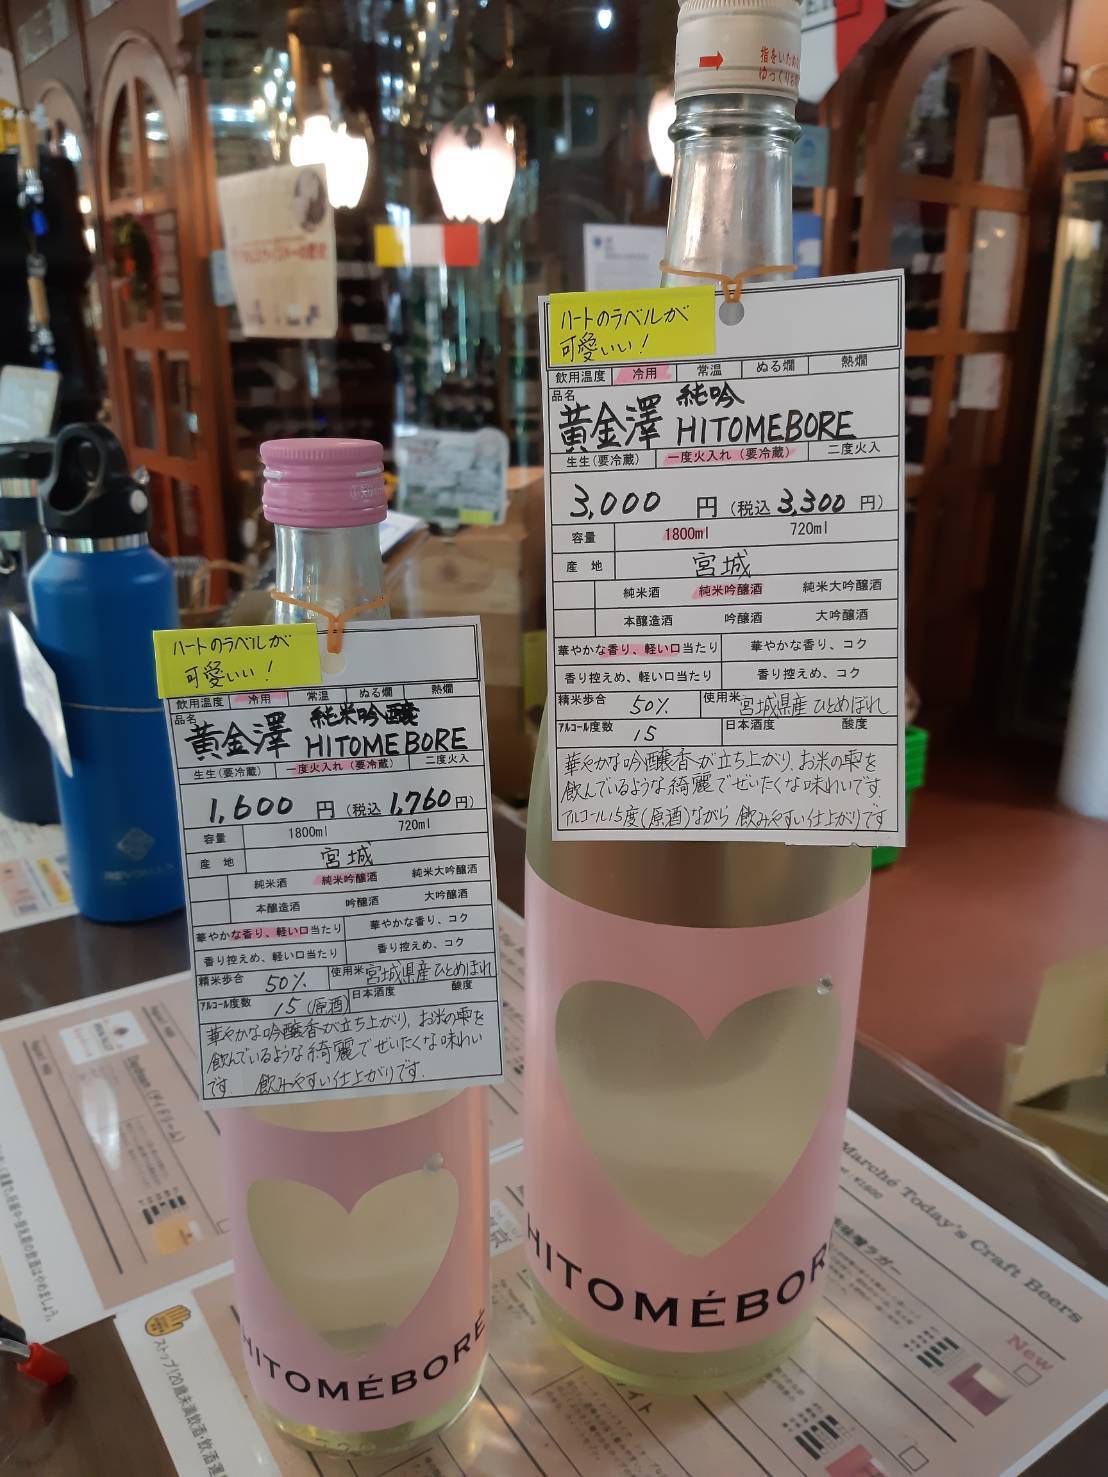 指をいため
ゆっくりお
ハートのラベルが
可愛いい!
飲用温度 冷用 常温 ぬる燗 熱燗
品名
黄金澤 純吟 HITOMEBORE
生生(要冷蔵) 一度火入れ(要冷蔵) 二度火入
3,000 円 (税込 3,300 円)
容量 1800ml 720ml
産 地 宮城
純米酒 純米吟醸酒 純米大吟醸酒
本醸造酒 吟醸酒 大吟醸酒
華やかな香り、軽い口当たり 華やかな香り、コク
香り控えめ、軽い口当たり 香り控えめ、コク
精米歩合 50% 使用米 宮城県産ひとめぼれ
アルコール度数 15 日本酒度 酸度
華やかな吟醸香が立ち上がり、お米の雫を
飲んでいるような綺麗でぜいたくな味わいです。
アルコール15度(原酒)ながら 飲みやすい仕上がりです
ハートのラベルが
可愛いい!
飲用温度 冷用 常温 ぬる燗 熱燗
品名
黄金澤 純米吟醸 HITOMEBORE
生生(要冷蔵) 一度火入れ(要冷蔵) 二度火入
1,600 円 (税込 1,760円)
容量 1800ml 720ml
産 地 宮城
純米酒 純米吟醸酒 純米大吟醸酒
本醸造酒 吟醸酒 大吟醸酒
華やかな香り、軽い口当たり 華やかな香り、コク
香り控えめ、軽い口当たり 香り控えめ、コク
精米歩合 50% 使用米 宮城県産ひとめぼれ
アルコール度数 15(原酒) 日本酒度 酸度
華やかな吟醸香が立ち上がり、お米の雫を
飲んでいるような綺麗でぜいたくな味わい
です。 飲みやすい仕上がりです。
HITOMÉBORE
HITOMÉBOR
Marché Today's Craft Beers
New
Daydream (デイドリーム)
ストップ!20歳未満飲酒・飲酒運